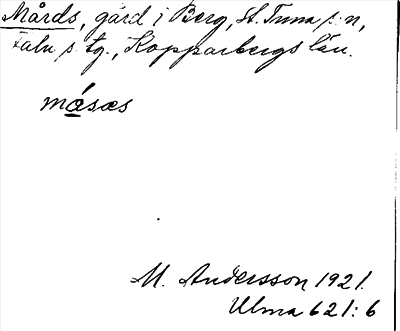 Mårds, gård i Berg, St. Tuna s:n,
Falu s. tg., Kopparbergs län.
måsæs
M. Andersson 1921.
Ulma 621:6